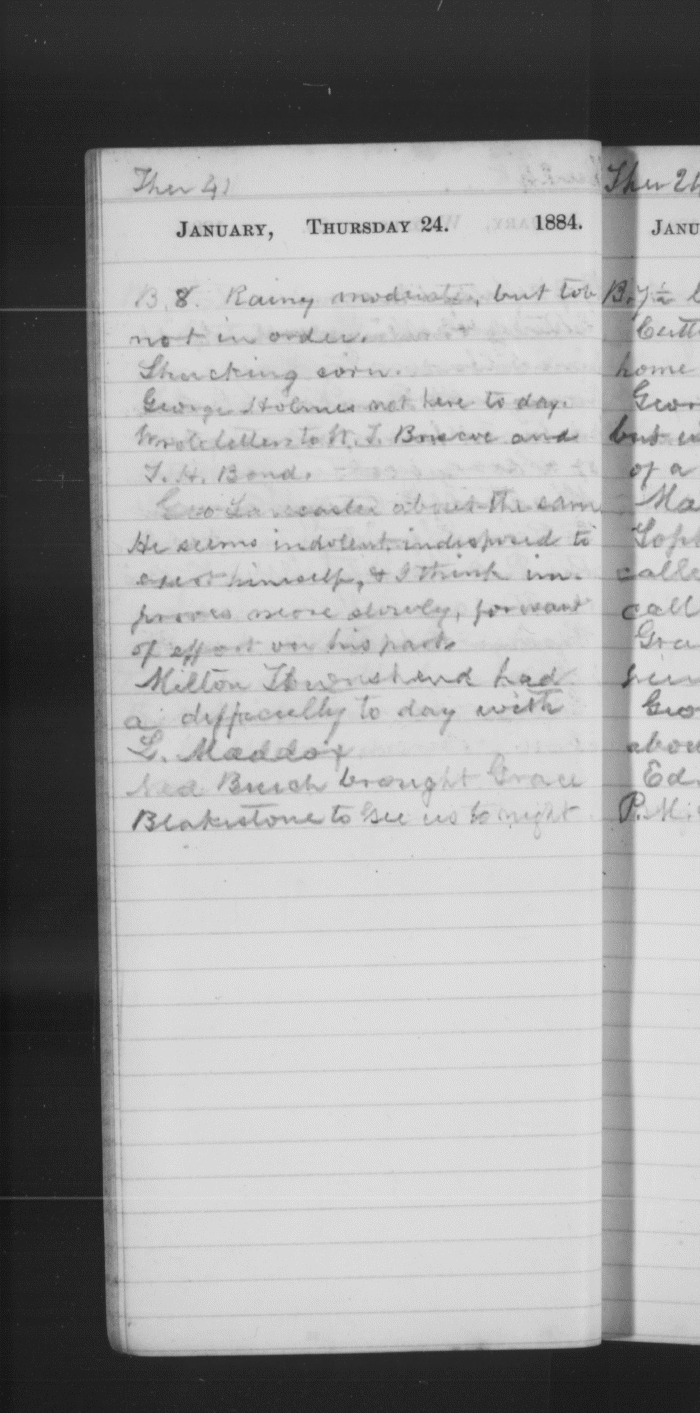 Ther 41
January, Thursday 24. 1884.
B. 8. Rainy moderate, but tob
not in order.
Shucking corn.
George Holmes not here to day.
Wrote letters to W. T. Briscoe and
T. H. Bond.
Geo Lancaster about the same
He seems indolent, indisposed to
exert himself, & I think im-
proves more slowly, for want
of effort on his part
Milton Townshend had
a difficulty to day with
L. Maddox
Ned Burch brought Grace
Blakistone to see us to night
Ther 26
Janu
B. 7½
home
Geor
but
of a
Ma
calle
call
Gra
Geo
abou
Ed
P.M.